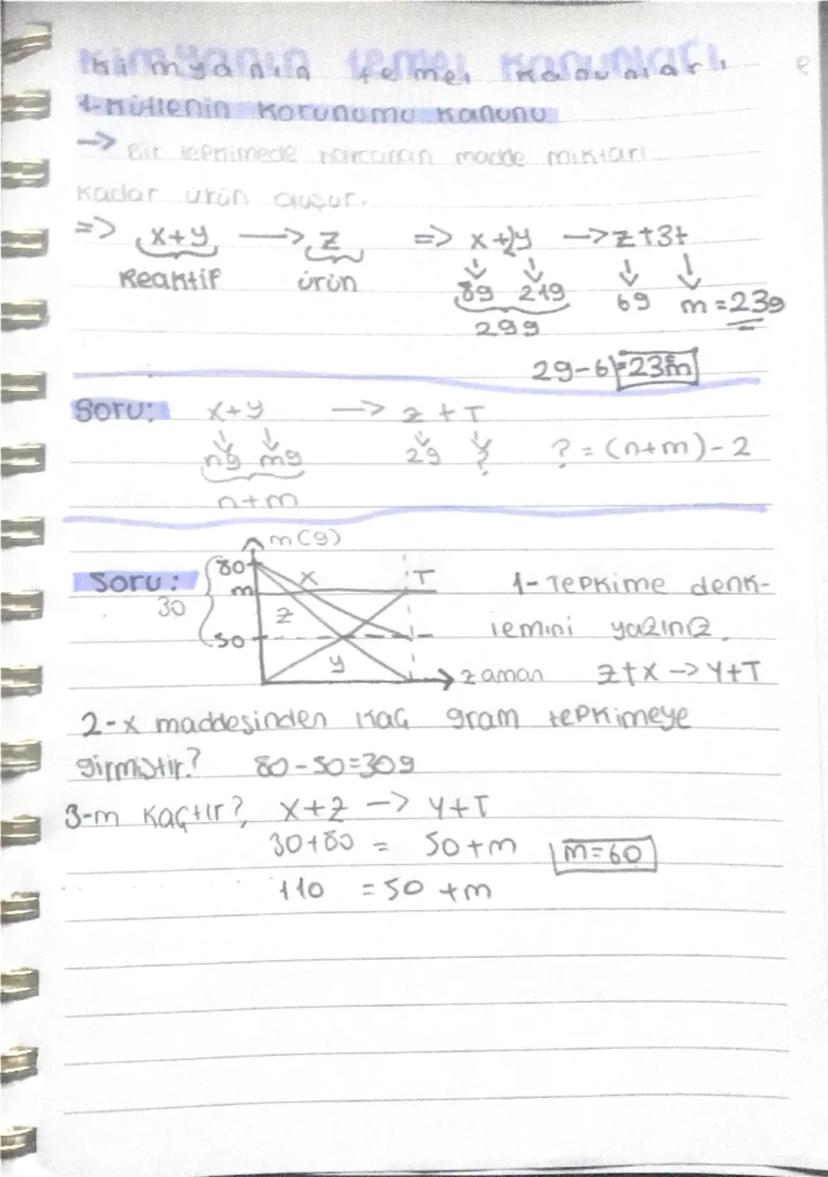 Kimyanın temel kanunları
1-Kütlenin Korunumu Kanunu
-> Bir tepkimede harcanan madde miktarı
kadar ürün oluşur.
=> x+y —> z => x+2y —> z+3t
Reaktif ürün 8g 21g 6g m=23g
29g
29-6=23m
Soru: x+y —> z+T
ng mg 2g ? ?=(n+m)-2
n+m
m(g)
Soru: 80 x T 1- Tepkime denk-
m
30 z
50 lemini yazınız.
y zaman z+x -> y+T
2-x maddesinden kaç gram tepkimeye
girmiştir? 80-50=30g
3-m kaçtır? x+z -> y+T
30+80 = 50+m m=60
110 = 50+m